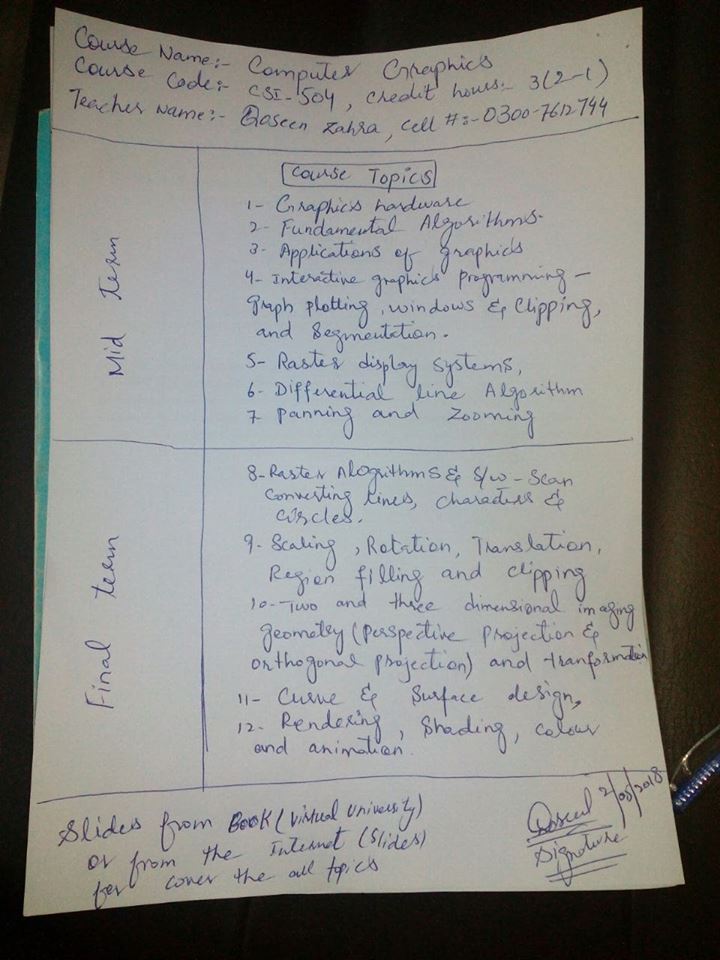 Course Name:- Computer Graphics
Course Code:- CSI-504, credit hours:- 3(2-1)
Teacher Name:- Qaseen Zahra, Cell #:- 0300-7612744
Course Topics
1- Graphics hardware
2- Fundamental Algorithms.
3- Applications of graphics
4- Interactive graphics programming -
graph plotting, windows & Clipping,
and Segmentation.
5- Raster display systems,
6- Differential line Algorithm
7 Panning and Zooming
Mid term
8- Raster Alogrithms & S/w - Scan
Converting lines, characters &
Circles.
9- Scaling, Rotation, Translation,
Region filling and clipping
10- Two and three dimensional imaging
geometry (perspective projection &
orthogonal projection) and tranformation
11- Curve & Surface design,
12- Rendering, Shading, colour
and animation.
Final term
Slides from BOOK (Virtual University)
or from the Internet (Slides)
for cover the all topics
2/05/2018
Signature